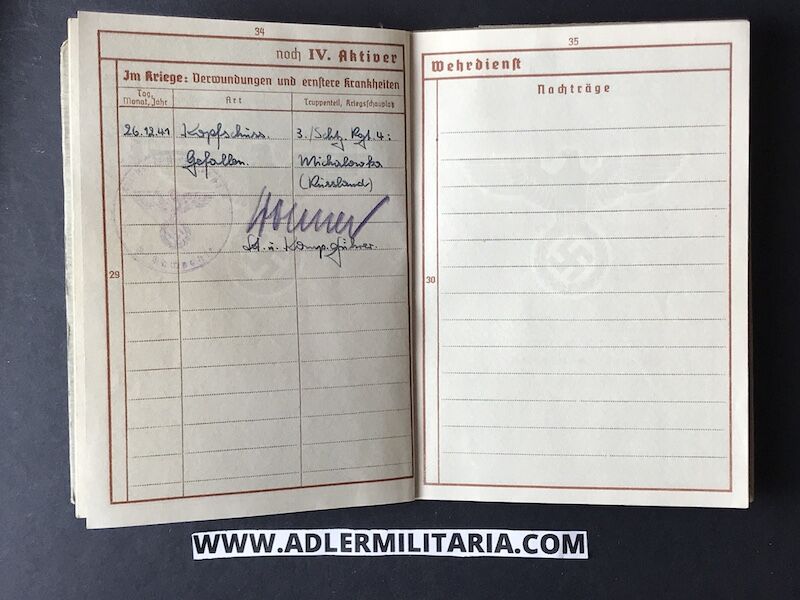 34
noch IV. Aktiver
Im Kriege: Verwundungen und ernstere Krankheiten
Tag, Monat, Jahr
Art
Truppenteil, Kriegsschauplatz
26.12.41 Kopfschuss. 3./Schtz. Rgt. 4:
Gefallen. Michalowka
(Russland)
Lt. u. Komp. Führer.
29
35
Wehrdienst
Nachträge
30
WWW.ADLERMILITARIA.COM